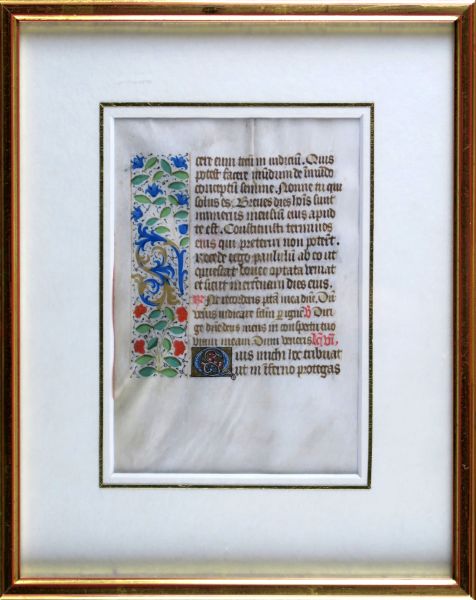 cere eum tecū in iudiciū. Quis
potest facere mūdum de īmūdo
conceptū semine. Nonne tu qui
solus es. Breues dies hoīs sunt
numerus mensiū eius apud
te est. Constituisti terminos
eius qui preteriri non potest.
Recede ergo paululū ab eo ut
quiescat donec optata veniat
et sicut mercenarii dies eius.
Ne recorderis pctā mea dn̄e. Dū
veneris iudicare sclm̄ p ignē V Diri
ge dn̄e deus meus in conspectu tuo
viam meam. Dum veneris. lc̄o vi.
Quis michi hoc tribuat
ut in īferno protegas